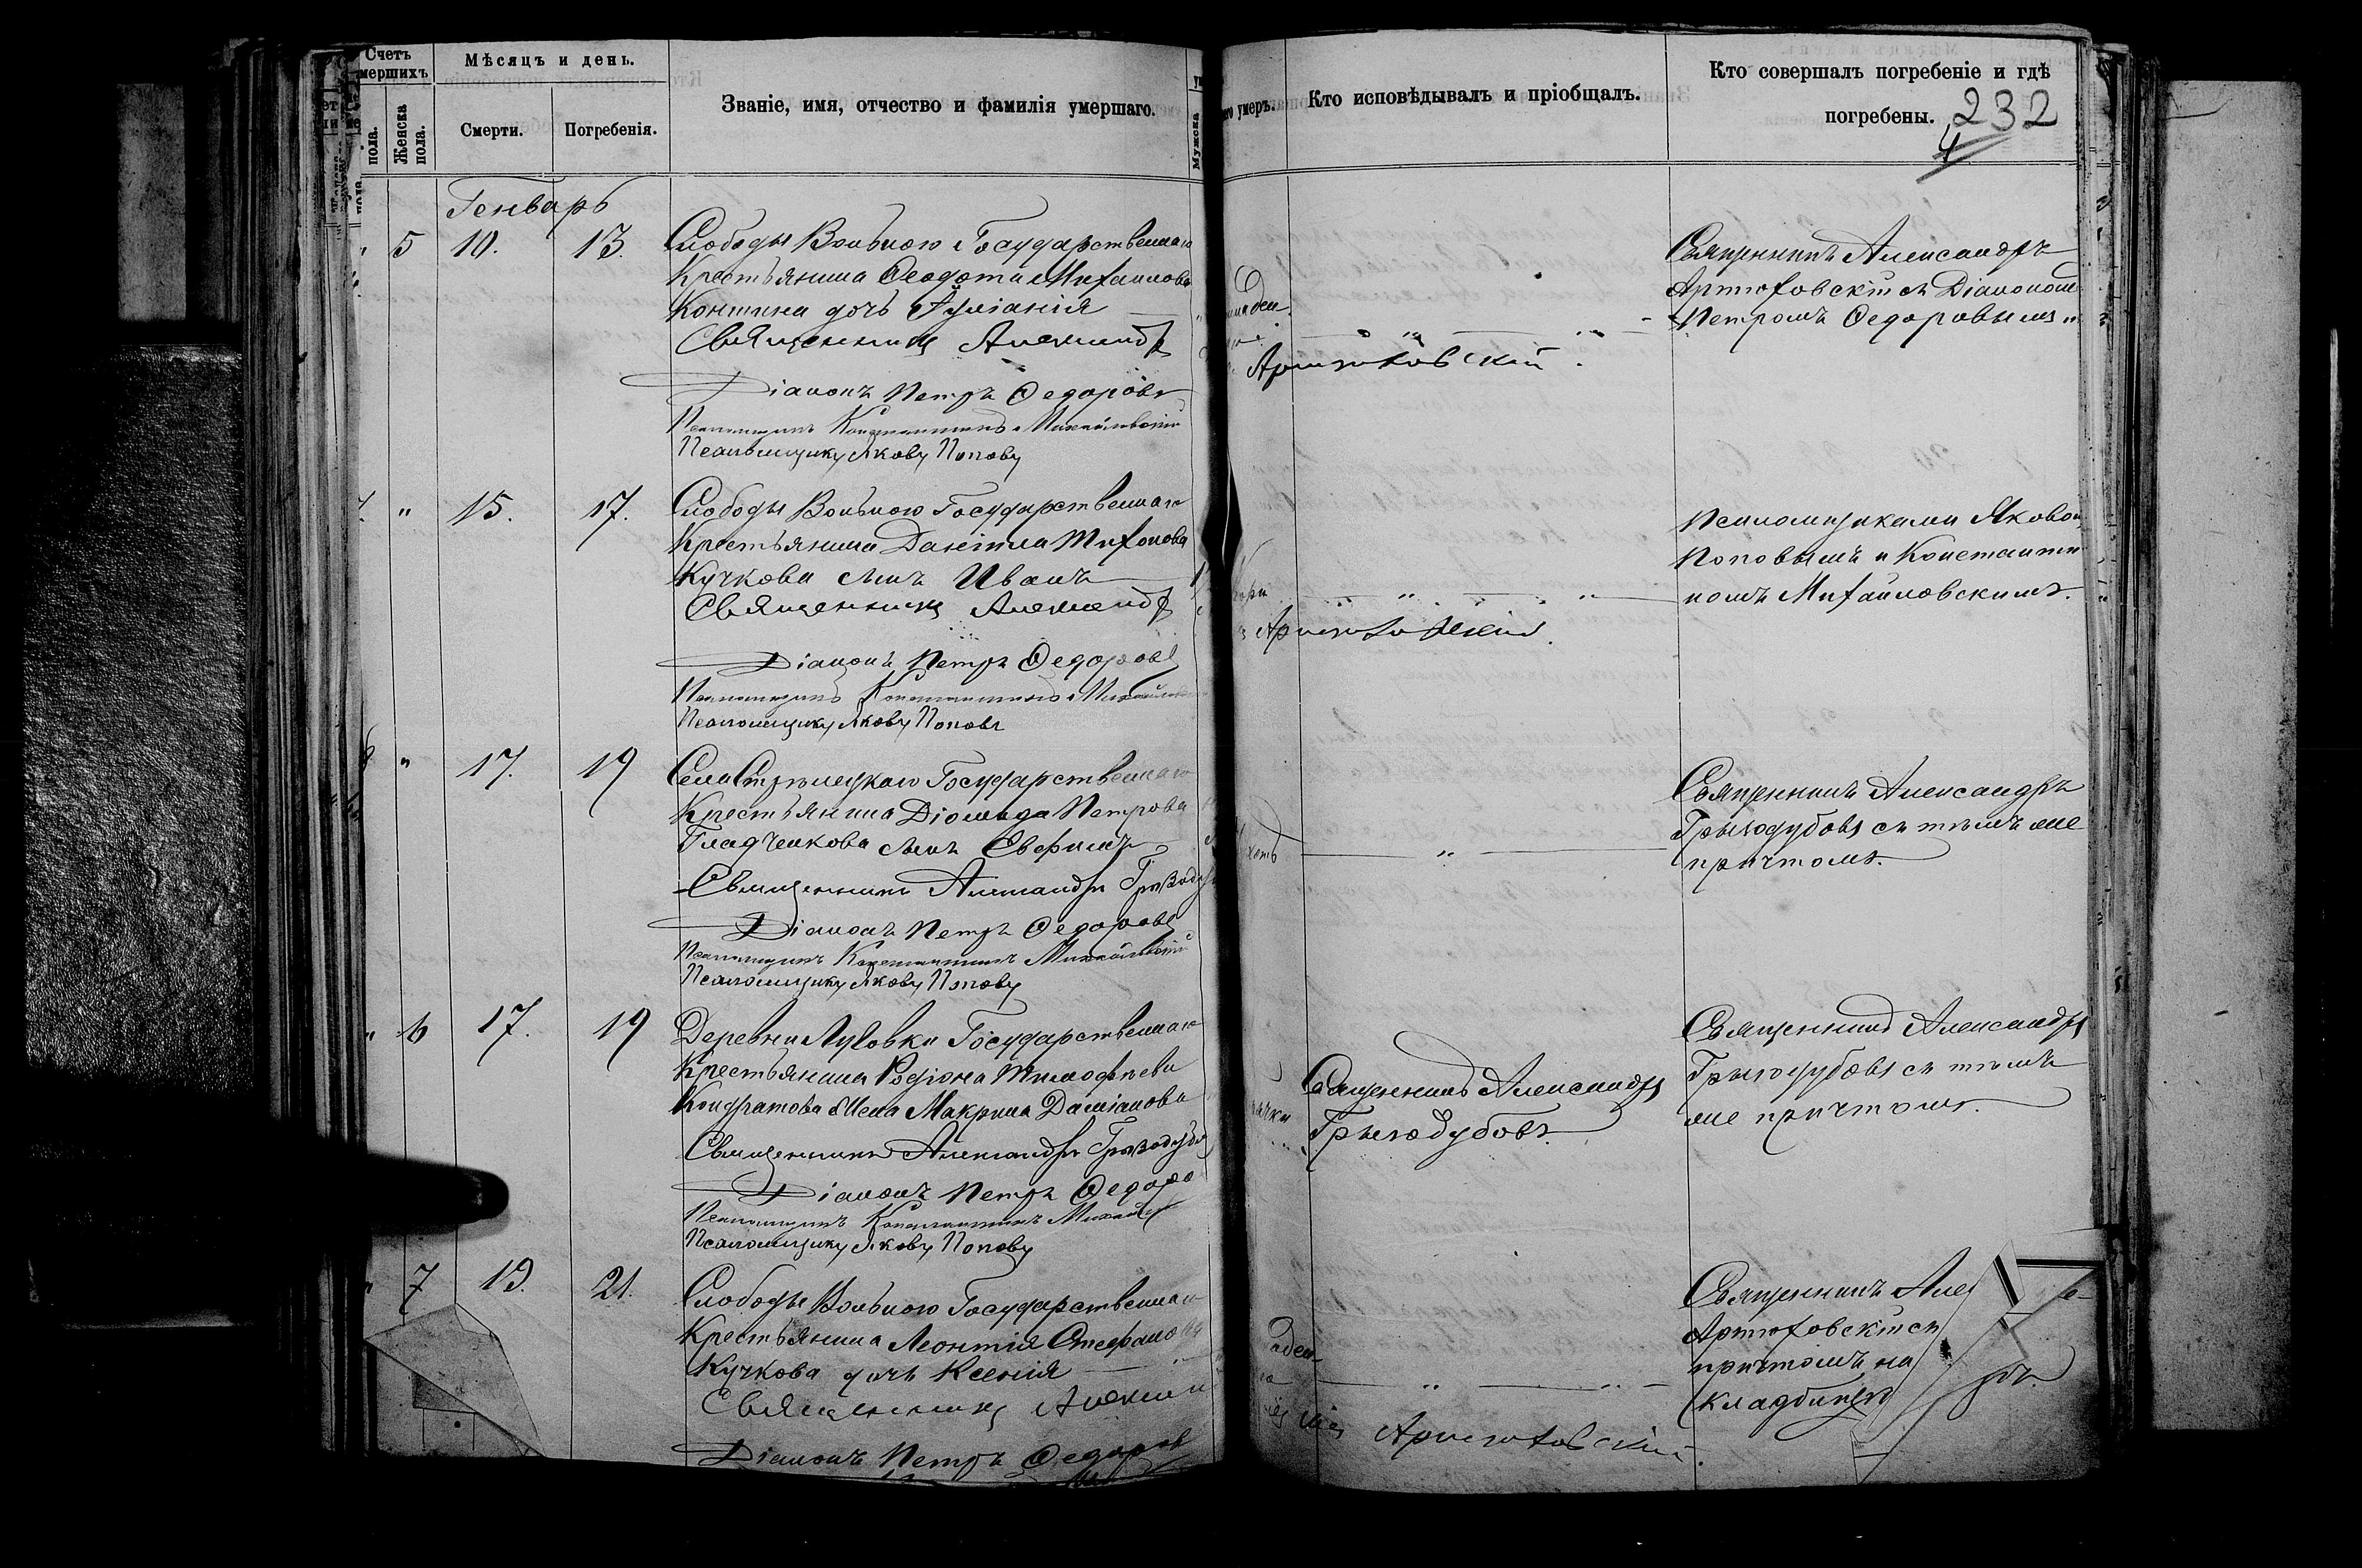 Счетъ
мершихъ
Мѣсяцъ и день.
Званіе, имя, отчество и фамилія умершаго.
пола.
Женска пола.
Смерти.
Погребенія.
Мужска
го умеръ.
Кто исповѣдывалъ и пріобщалъ.
Кто совершалъ погребеніе и гдѣ
погребены.
232
4
Генварь
5 10. 13.
Слободы Вольного Государственнаго
Крестьянина Ѳеодота Михаилова
дочь Іуліанія
Священникъ Александръ
Артюховскій
Діаконъ Петръ Ѳедоровъ
Псаломщикъ Константинъ Михайловскій
Псаломщикъ Яковъ Поповъ
Священникъ Александръ
Артюховскій съ Діакономъ
Петромъ Ѳедоровымъ
" 15. 17.
Слободы Вольного Государственнаго
Крестьянина Даніила
Кучкова сынъ Иванъ
Священникъ Александръ
Артюховскій.
Діаконъ Петръ Ѳедоровъ
Псаломщикъ Константинъ
Псаломщикъ Яковъ Поповъ
Псаломщиками Яковом
Поповымъ и Константи
номъ Михайловскимъ.
" 17. 19
Села Стрѣлецкаго Государственнаго
Крестьянина Діомида Петрова
Гладченкова сынъ Евфимъ
Священникъ Александръ
Діаконъ Петръ Ѳедоровъ
Псаломщикъ Константинъ Михайловскій
Псаломщикъ Яковъ Поповъ
Священникъ Александръ
Грызодубовъ съ тѣмъ же
причтомъ.
" 6 17. 19
Деревни Государственнаго
Крестьянина Родіона Тимофѣева
Кондратова жена Макрина Даміанова
Священникъ Александръ
Діаконъ Петръ Ѳедоро
Псаломщикъ Константинъ
Псаломщикъ Яковъ Поповъ
Священникъ Александръ
Грызодубовъ.
Священникъ Александръ
Грызодубовъ съ тѣмъ
же причтомъ.
" 7 19. 21.
Слободы Вольного Государственнаго
Крестьянина Леонтія Стефано
Кучкова дочь Ксенія
Священникъ
Артюховскій.
Діаконъ Петръ Ѳедоров
Священникъ Але
Артюховскій съ
причтомъ на
кладбищѣ